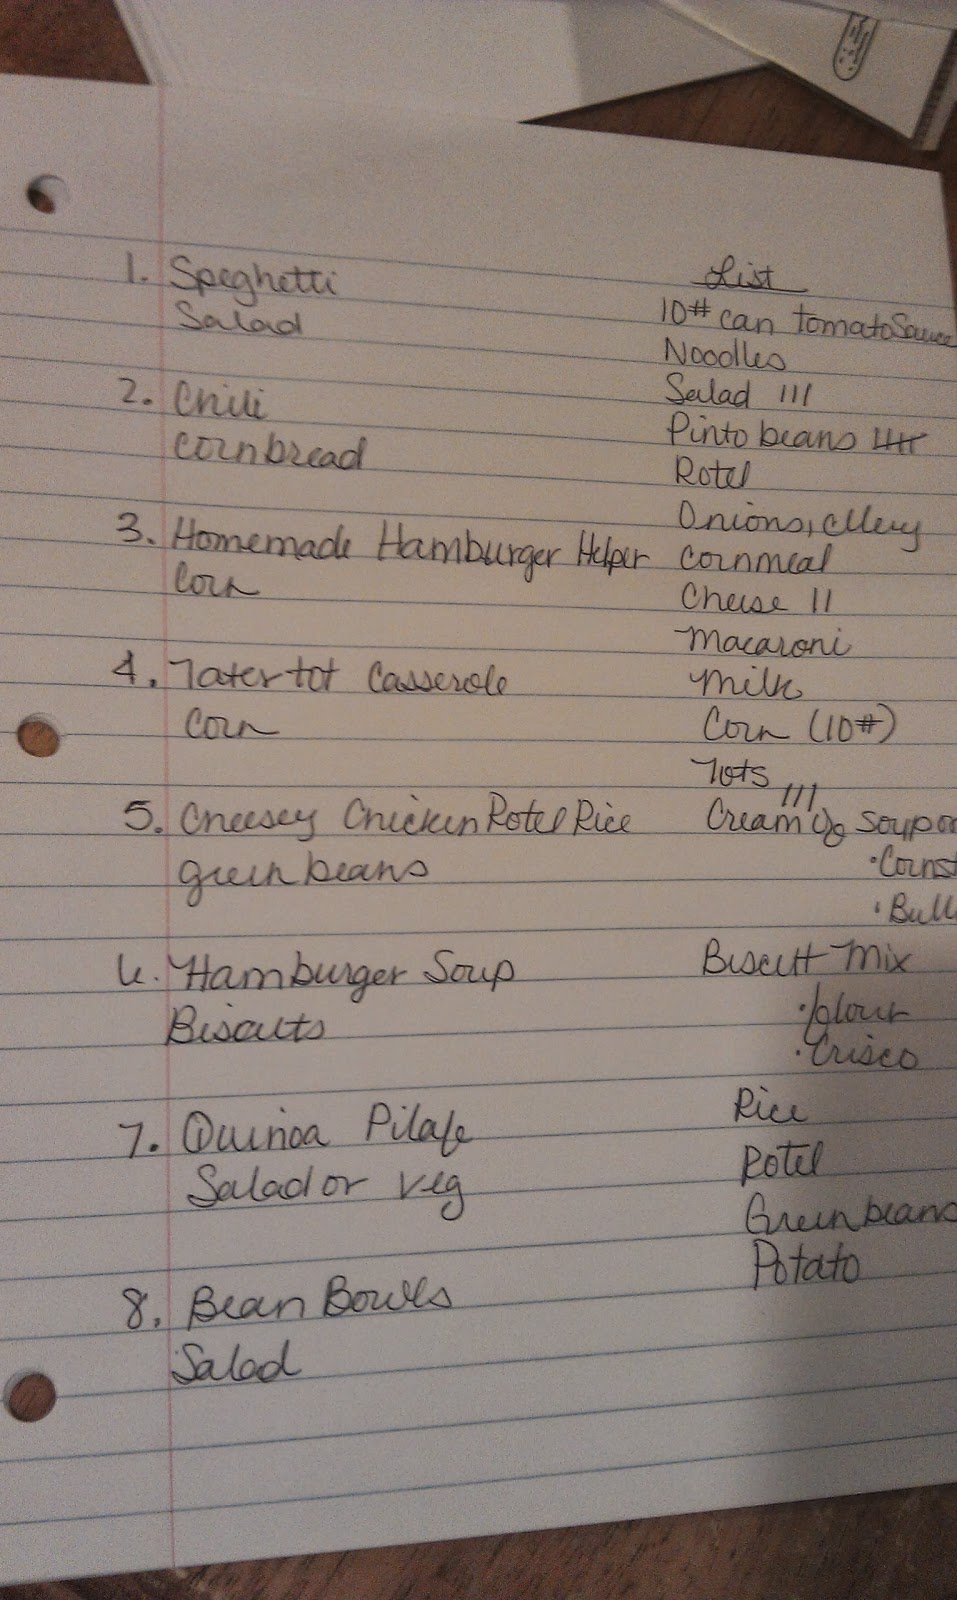 1. Speghetti
Salad
2. Chili
cornbread
3. Homemade Hamburger Helper
Corn
4. Tatertot Casserole
Corn
5. Cheesey Chicken Rotel Rice
green beans
6. Hamburger Soup
Biscuits
7. Quinoa Pilafe
Salad or veg
8. Bean Bowls
Salad
List
10# can tomato Sauce
Noodles
Salad III
Pinto beans IIII
Rotel
Onions, cllery
cornmeal
Cheese II
Macaroni
Milk
Corn (10#)
Tots
III
Cream of soup or
• Cornst
• Bull
Biscutt Mix
• flour
• Crisco
Rice
Rotel
Green beans
Potato